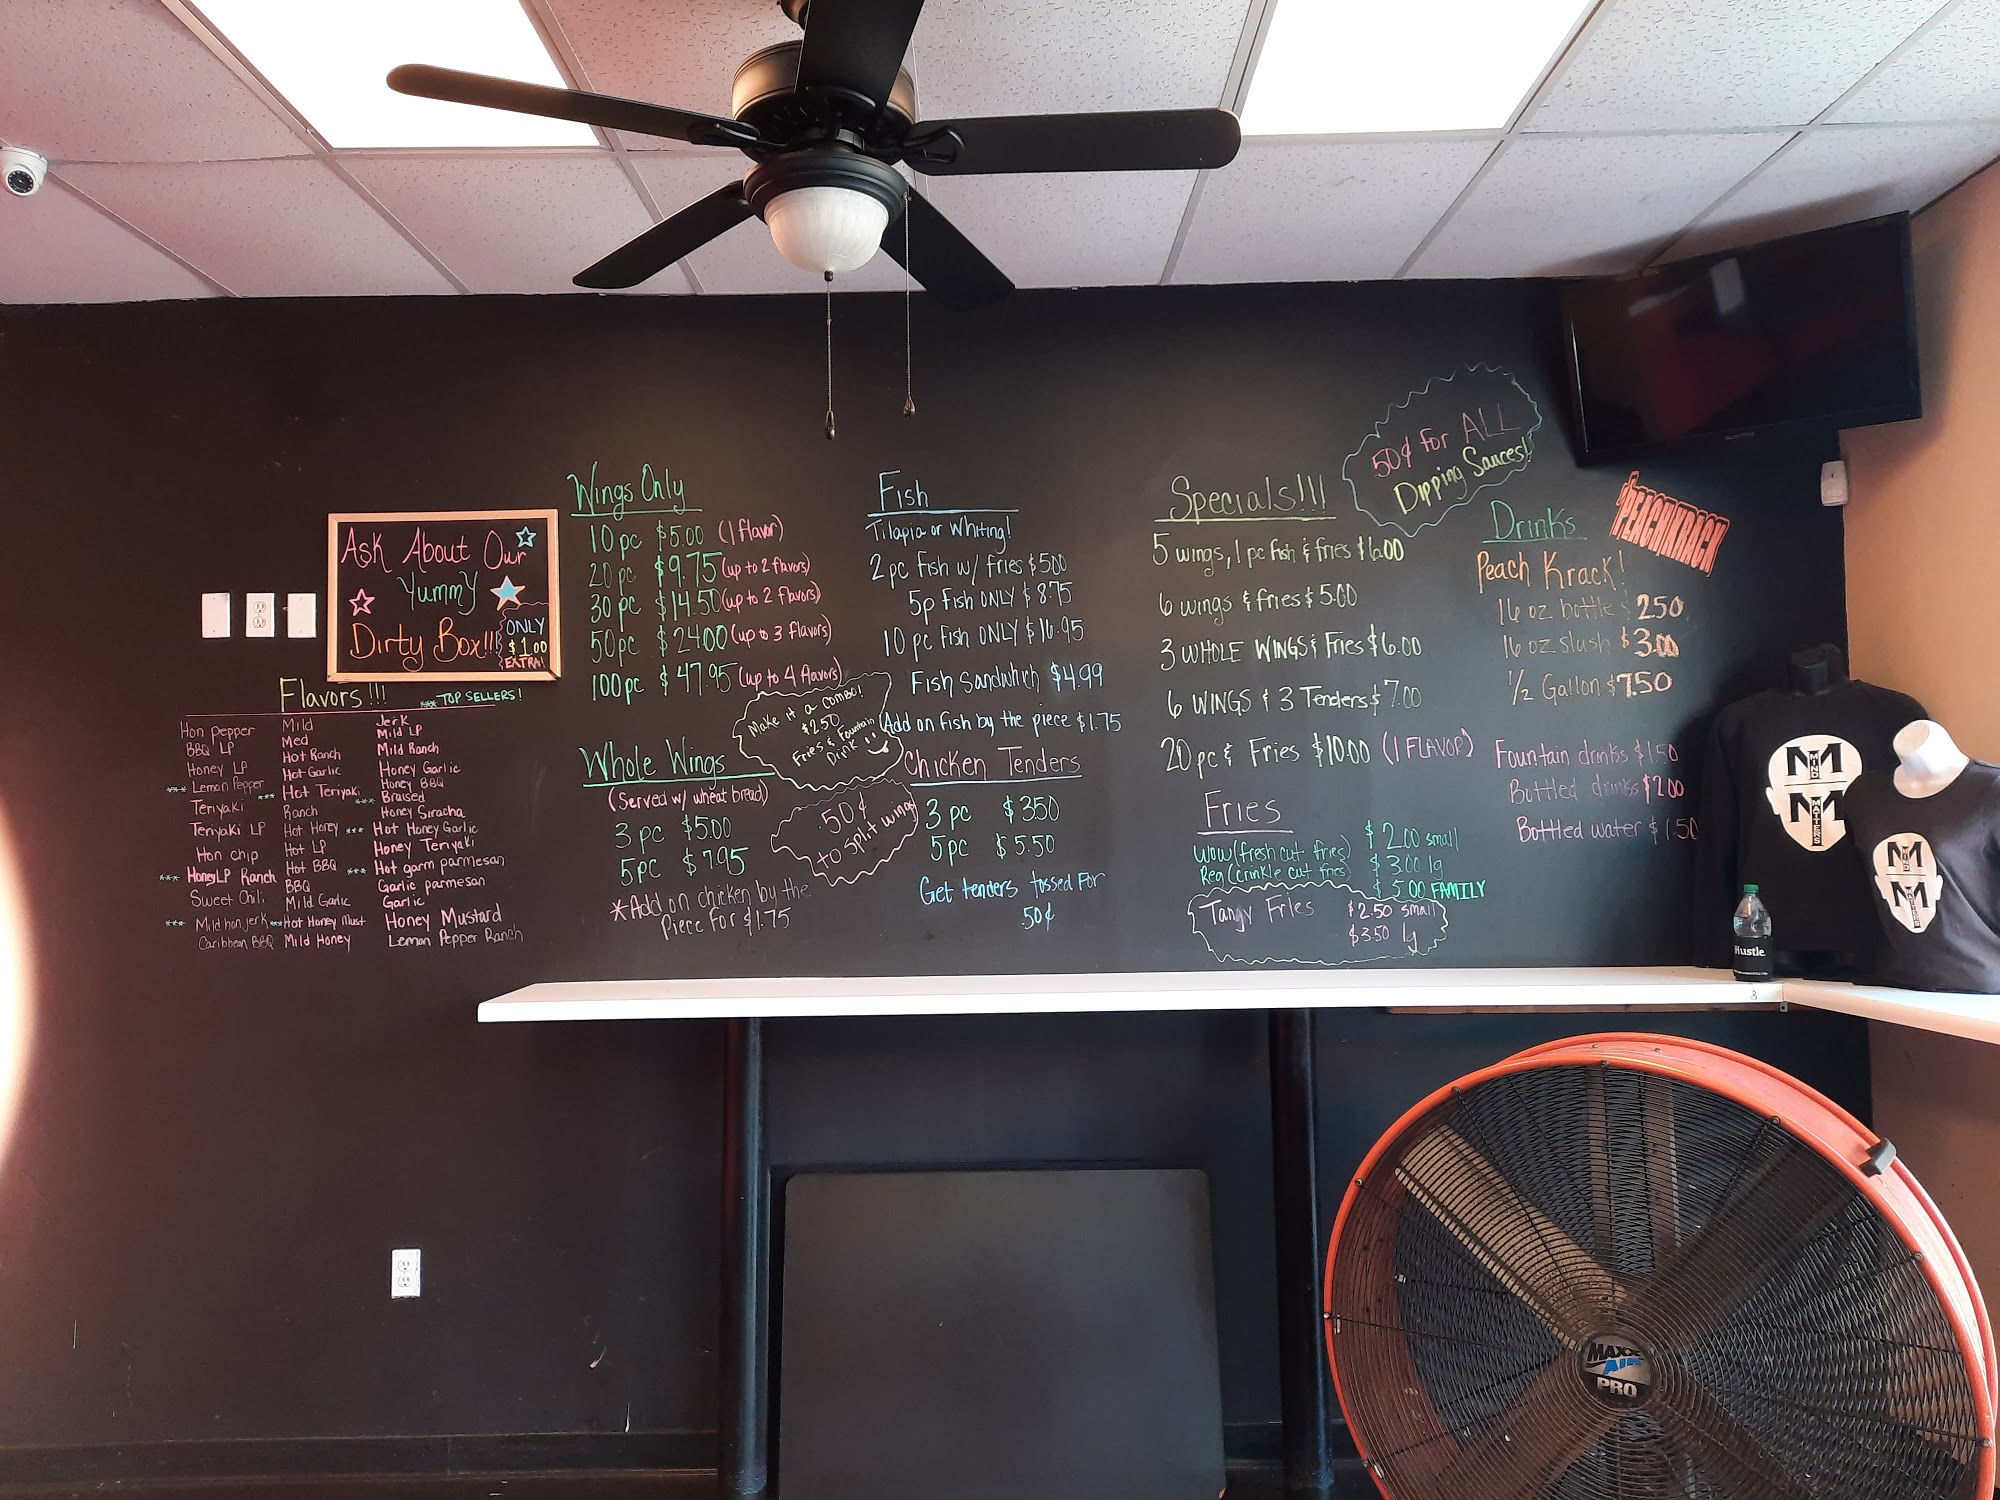 Ask About Our
Yummy
Dirty Box!!!
ONLY
$1.00
EXTRA!
Flavors!!!
*** TOP SELLERS!
Hon Pepper
BBQ LP
Honey LP
*** Lemon Pepper
Teriyaki
Teriyaki LP
Hon chip
*** Honey LP Ranch
Sweet Chili
*** Mild hon jerk
Caribbean BBQ
Mild
Med
Hot Ranch
Hot Garlic
*** Hot Teriyaki
Ranch
Hot Honey
Hot LP
Hot BBQ
BBQ
Mild Garlic
*** Hot Honey Must
Mild Honey
Jerk
Mild LP
Mild Ranch
Honey Garlic
Honey BBQ
*** Braised
Honey Siracha
*** Hot Honey Garlic
Honey Teriyaki
*** Hot garm parmesan
Garlic parmesan
Garlic
Honey Mustard
Lemon Pepper Ranch
Wings Only
10 pc $5.00 (1 flavor)
20 pc $9.75 (up to 2 flavors)
30 pc $14.50 (up to 2 flavors)
50 pc $24.00 (up to 3 flavors)
100 pc $47.95 (up to 4 flavors)
Make it a combo!
$2.50
Fries & Fountain
Drink
Whole Wings
(Served w/ wheat bread)
3 pc $5.00
5 pc $7.95
*Add on chicken by the
Piece for $1.75
.50¢
to split wings
Fish
Tilapia or Whiting!
2 pc Fish w/ fries $5.00
5p Fish ONLY $8.75
10 pc Fish ONLY $16.95
Fish Sandwhich $4.99
Add on fish by the piece $1.75
Chicken Tenders
3 pc $3.50
5 pc $5.50
Get tenders tossed for
.50¢
Specials!!!
5 wings, 1 pc fish & fries $6.00
6 wings & fries $5.00
3 WHOLE WINGS & Fries $6.00
6 WINGS & 3 Tenders $7.00
20 pc & Fries $10.00 (1 FLAVOR)
50¢ for ALL
Dipping Sauces!
Fries
Wow (fresh cut fries) $2.00 small
Reg (crinkle cut fries) $3.00 lg
$5.00 FAMILY
Tangy Fries $2.50 small
$3.50 lg
Drinks
PEACHKRACK
Peach Krack!
16 oz bottle $2.50
16 oz slush $3.00
1/2 Gallon $7.50
Fountain drinks $1.50
Bottled drinks $2.00
Bottled water $1.50
M
MIND
M
MATTERS
M
M
Hustle.
MAXX
AIR
PRO